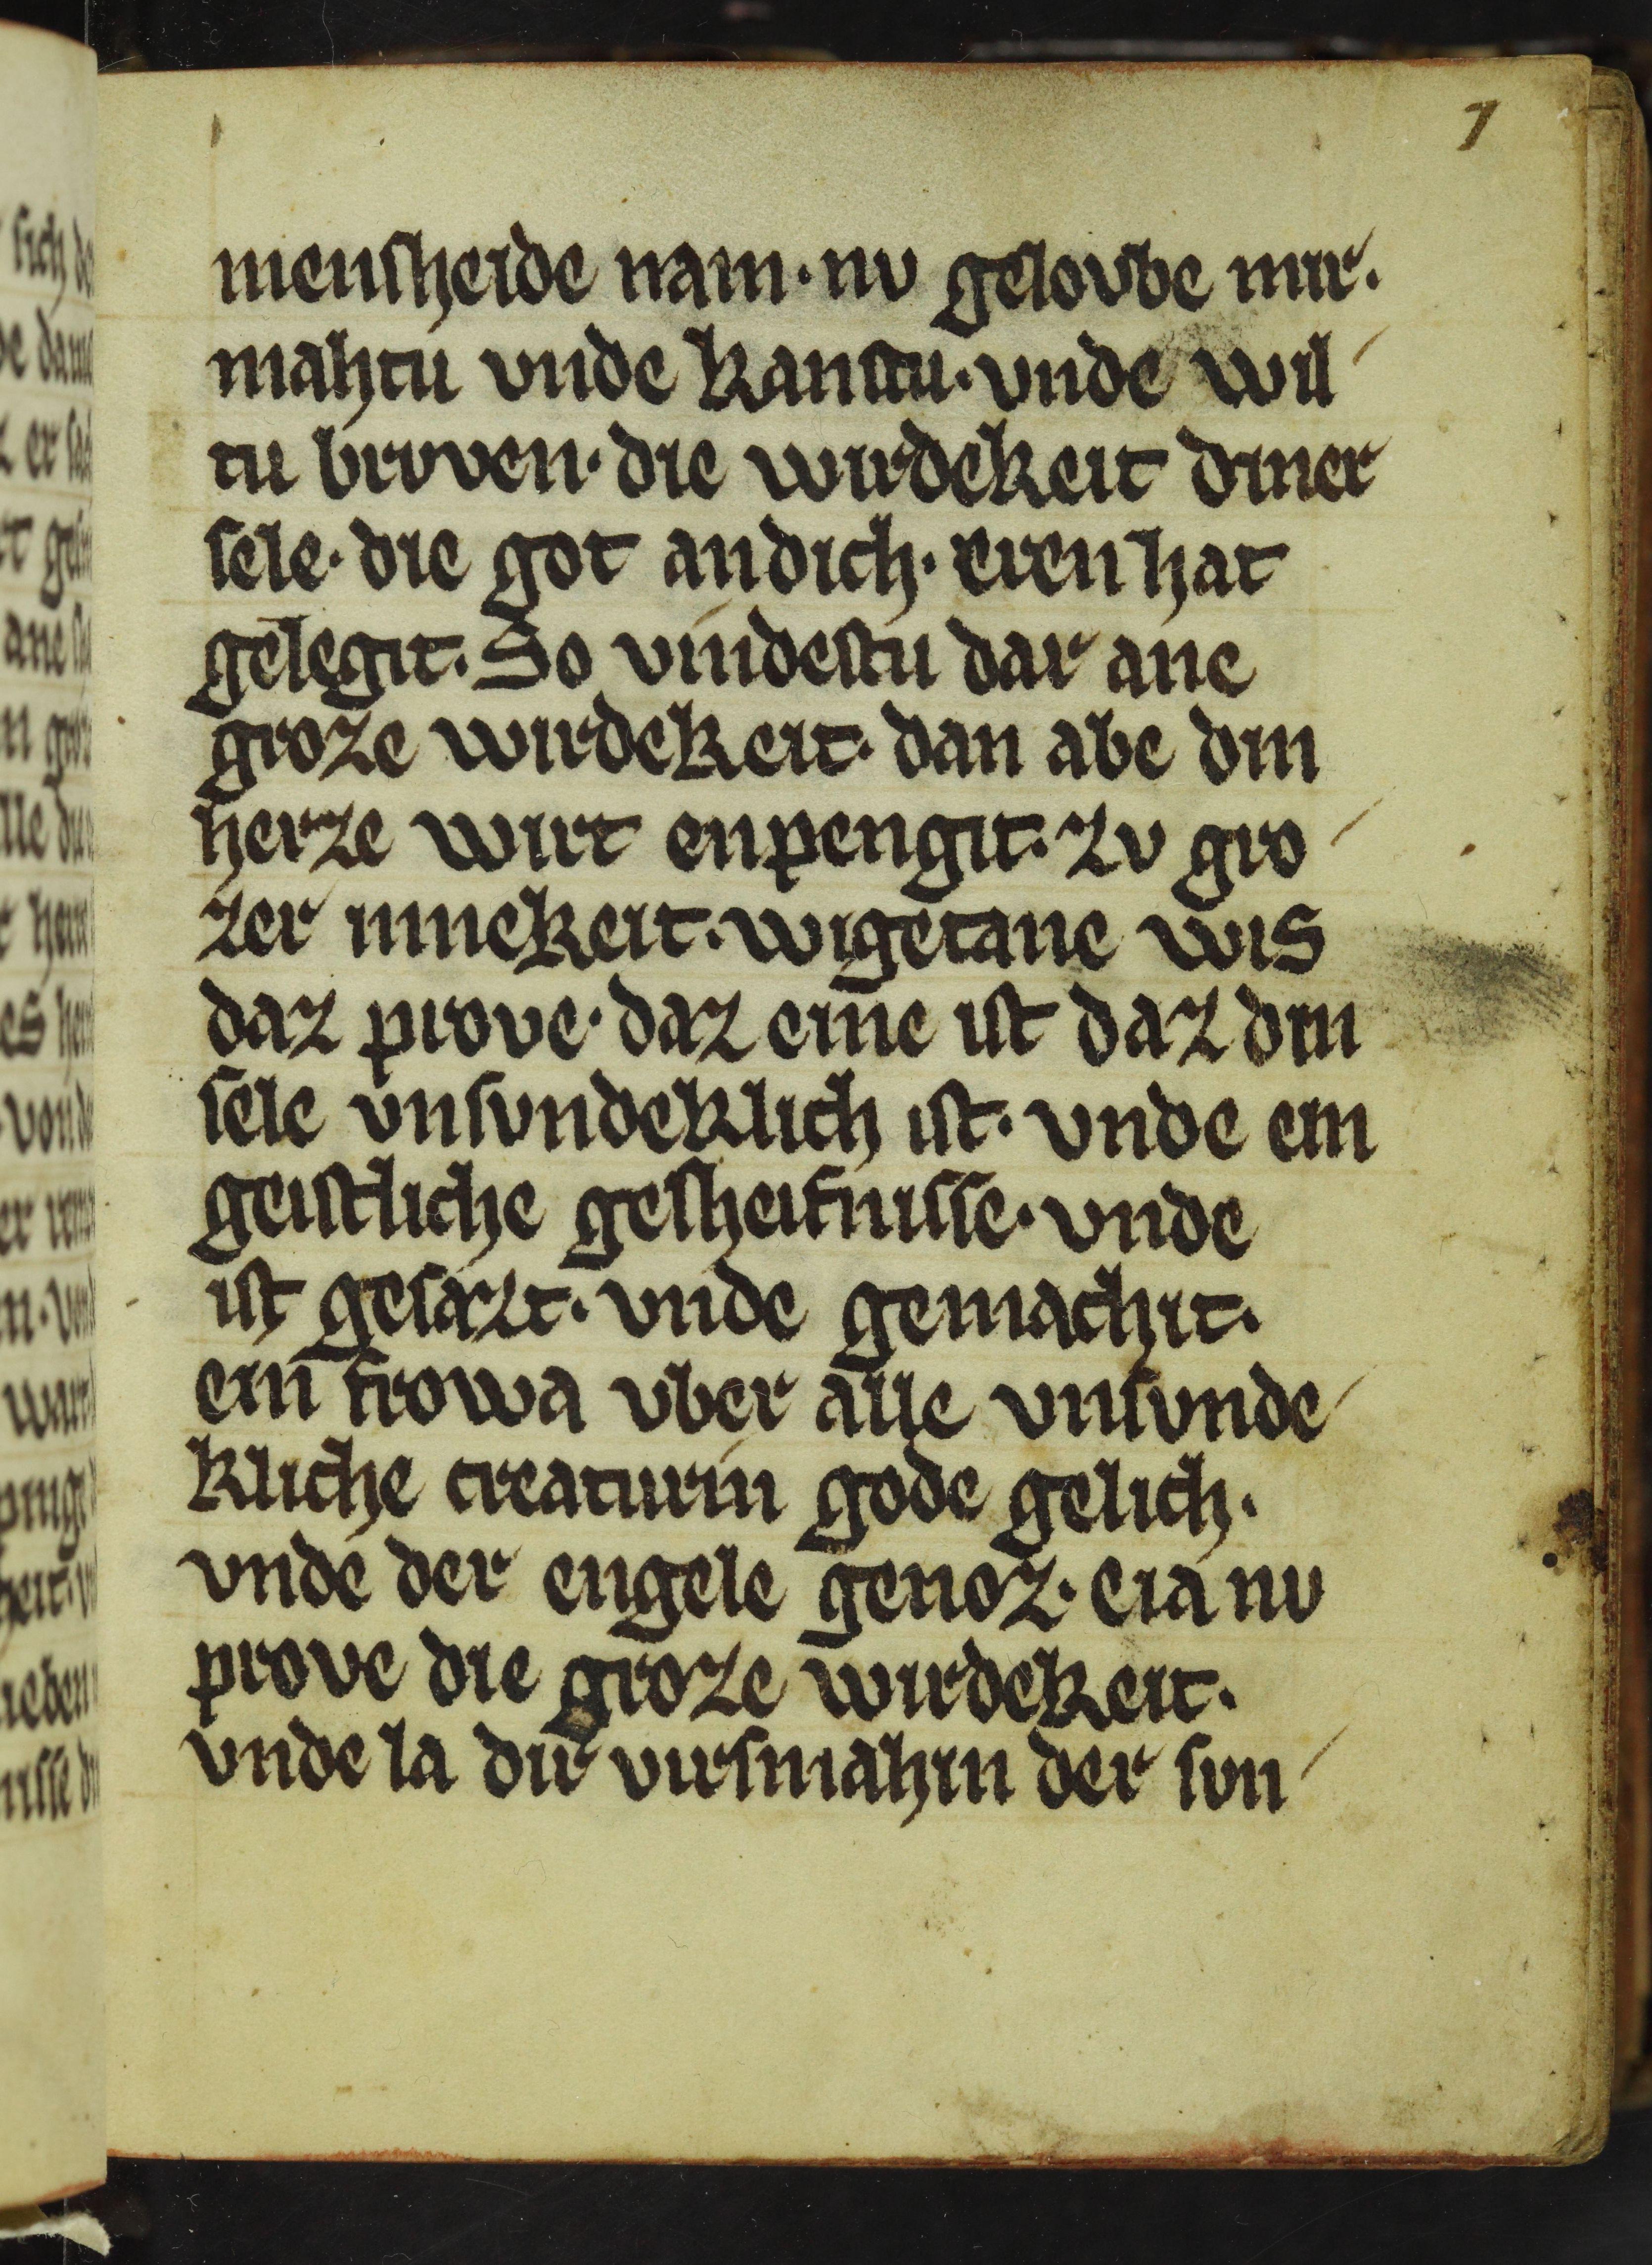 7
menſheide nam · nv gelovbe mir.
mahtu vnde kanſtu · vnde wil
tu brvven · die wirdekeit diner
ſele · die got andich · eren hat
gelegit. So vindeſtu dar ane
groze wirdekeit · dan abe din
herze wirt enpengit · zv gro
zer innekeit · wigetane wis
daz prove · daz eine iſt daz din
ſele vnſvndeklich iſt · vnde ein
geiſtliche geſheifniſſe · vnde
iſt geſazt · vnde gemachit.
ein frowa vber alle vnſvnde
kliche creaturin gode gelich.
vnde der engele genoz · eia nv
prove die groze wirdekeit.
vnde la dir virſmahin der ſvn